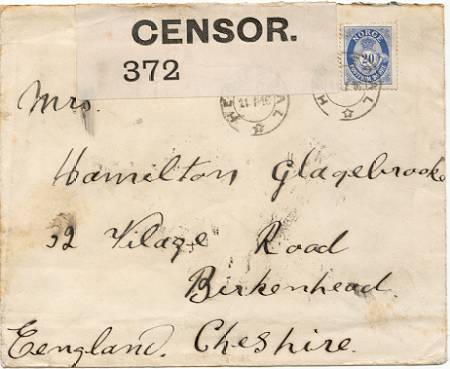 CENSOR.
372
NORGE
20
Mrs.
Hamilton Glagebrooke
32 Vilage Road
Birkenhead.
Eengland. Cheshire.